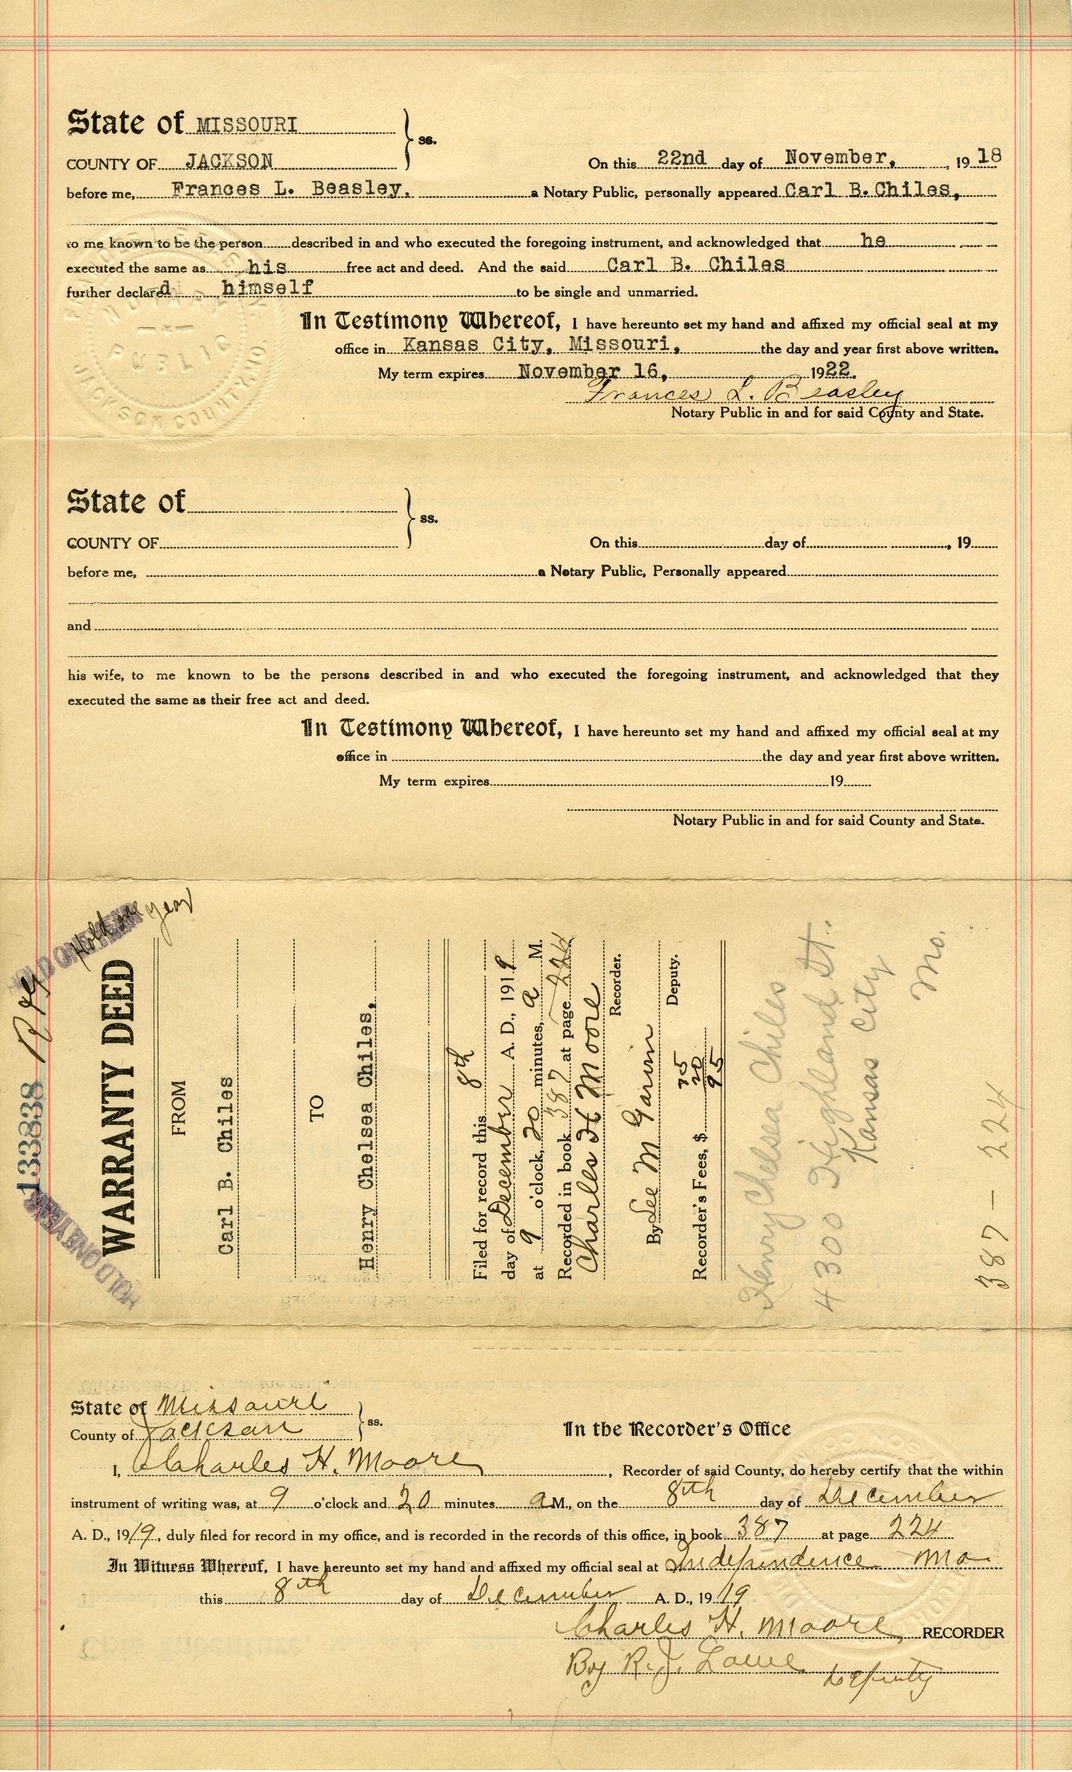 State of MISSOURI
ss.
COUNTY OF JACKSON On this 22nd day of November, 1918
before me, Frances L. Beasley. a Notary Public, personally appeared Carl B. Chiles,
to me known to be the person described in and who executed the foregoing instrument, and acknowledged that he
executed the same as his free act and deed. And the said Carl B. Chiles
further declared himself to be single and unmarried.
In Testimony Whereof, I have hereunto set my hand and affixed my official seal at my
office in Kansas City, Missouri, the day and year first above written.
My term expires November 16, 1922.
Frances L. Beasley
Notary Public in and for said County and State.
NOTARY
PUBLIC
JACKSON COUNTY, MO.
State of
ss.
COUNTY OF On this day of , 19
before me, a Notary Public, Personally appeared
and
his wife, to me known to be the persons described in and who executed the foregoing instrument, and acknowledged that they
executed the same as their free act and deed.
In Testimony Whereof, I have hereunto set my hand and affixed my official seal at my
office in the day and year first above written.
My term expires 19
Notary Public in and for said County and State.
133838
HOLD ONE YEAR
HOLD ONE YEAR
Hold one year
WARRANTY DEED
FROM
Carl B. Chiles
TO
Henry Chelsea Chiles,
Filed for record this 8th
day of December A. D., 1919
at 9 o'clock, 20 minutes, a M.
Recorded in book 387 at page 224
Charles H Moore
Recorder.
By Lee M Garvin
Deputy.
75
20
Recorder's Fees, $ 95
Henry Chelsea Chiles
4300 Highland St.
Kansas City
Mo.
387 - 224
State of Missouri
ss.
County of Jackson In the Recorder's Office
I, Charles H. Moore, Recorder of said County, do hereby certify that the within
instrument of writing was, at 9 o'clock and 20 minutes a M., on the 8th day of December
A. D., 1919, duly filed for record in my office, and is recorded in the records of this office, in book 387 at page 224
In Witness Whereof, I have hereunto set my hand and affixed my official seal at Independence Mo
this 8th day of December A. D., 1919
Charles H. Moore, RECORDER
By R. J. Lowe Deputy